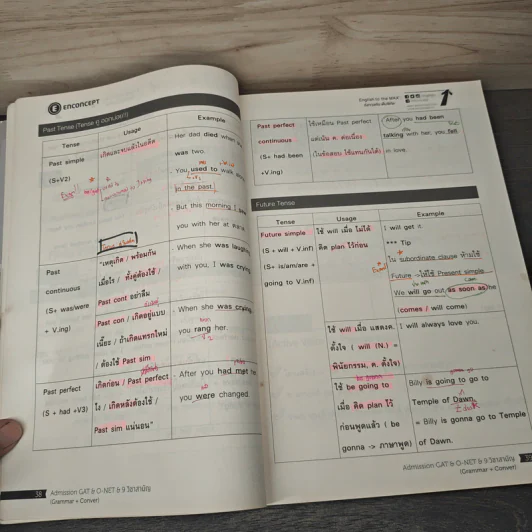 ENCONCEPT
Past Tense (Tense คู่ ออกบ่อย!!)
Tense
Usage
Example
Past simple
(S+V2)
เกิดและจบแล้วในอดีต
Her dad died when
was two.
You used to walk
in the past.
But this morning I
you with her at
Past
continuous
(S+ was/were
+ V.ing)
"เหตุเกิด / พร้อมกัน
เมื่อไร / ทั้งคู่ต้องใช้ /
Past cont อย่าลืม
Past con / เกิดอยู่แบบ
เนี้ยะ / ถ้าเกิดแทรกใหม่
/ ต้องใช้ Past sim
When she was laughing
with you, I was crying
When she was crying,
you rang her.
Past perfect
(S + had +V3)
เกิดก่อน / Past perfect
ไง / เกิดหลังต้องใช้ /
Past sim แน่นอน"
After you had met
you were changed
38
Admission GAT & O-NET & 9 วิชาสามัญ
(Grammar + Conver)
Past perfect
continuous
(S+ had been
+V.ing)
ใช้เหมือน Past perfect
แต่เน้น ค. ต่อเนื่อง
(ในข้อสอบ ใช้แทนกันได้)
After you had been
talking with her, you fell
in love.
Future Tense
Tense
Usage
Example
Future simple
(S + will + V.inf)
(S+ is/am/are +
going to V.inf)
ใช้ will เมื่อ ไม่ได้
คิด plan ไว้ก่อน
I will get it.
*** Tip
ใน subordinate clause ห้ามใช้
Future ->ให้ใช้ Present simple
We will go out as soon as he
(comes / will come)
ใช้ will เมื่อ แสดงค.
ตั้งใจ ( will (N.) =
พินัยกรรม, ค. ตั้งใจ)
I will always love you.
ใช้ be going to
เมื่อ คิด plan ไว้
ก่อนพูดแล้ว ( be
gonna -> ภาษาพูด)
Billy is going to go to
Temple of Dawn.
= Billy is gonna go to Temple
of Dawn.
Admission GAT & O-NET & 9 วิชาสามัญ
(Grammar + Conver)